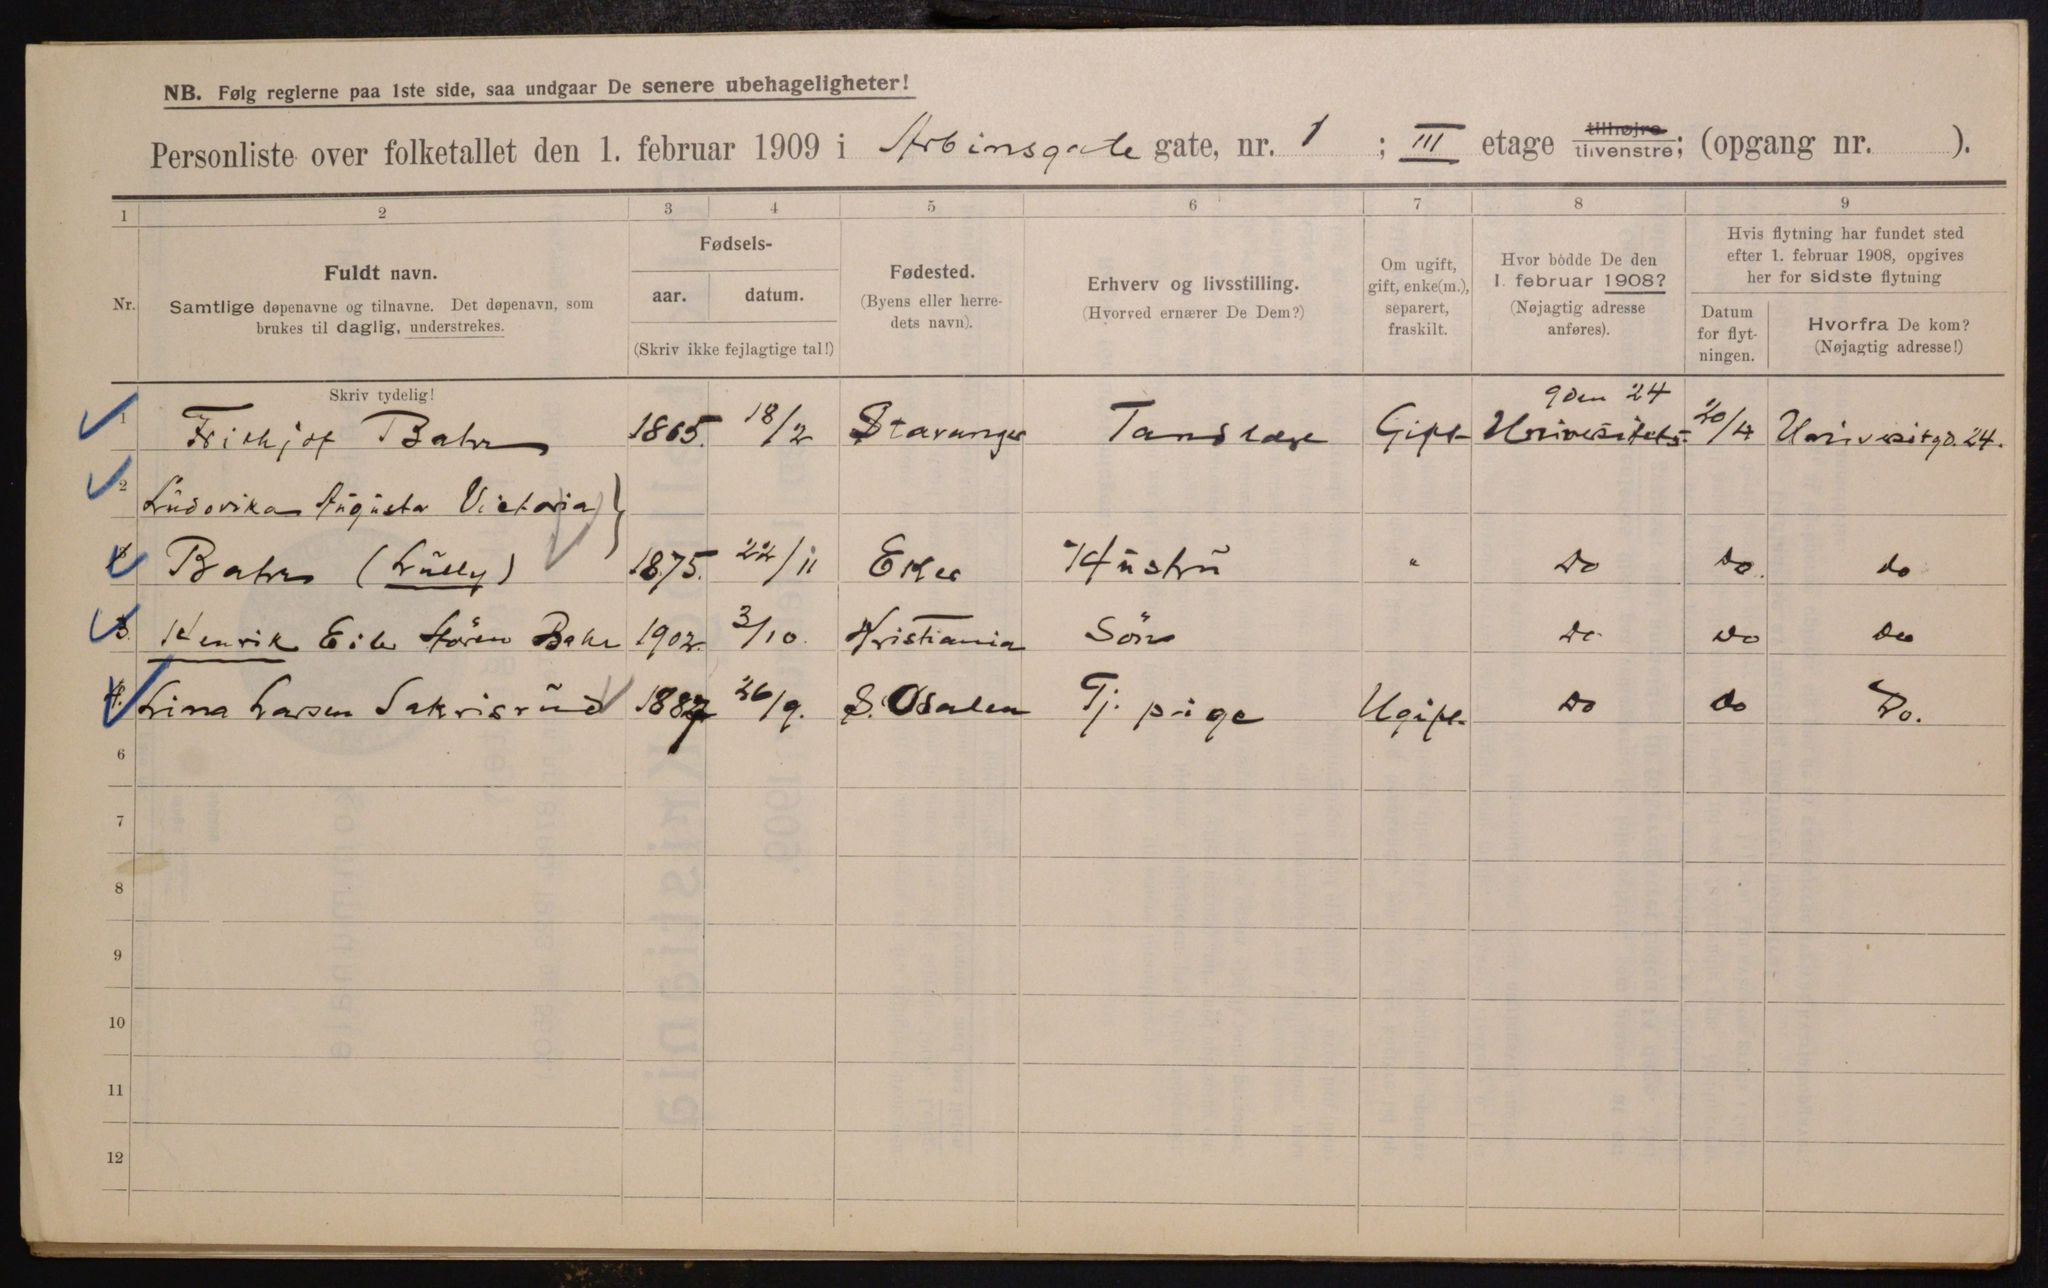 NB. Følg reglerne paa 1ste side, saa undgaar De senere ubehageligheter!
Personliste over folketallet den 1. februar 1909 i Arbinsgate gate, nr. 1 ; III etage tilhøjre tilvenstre; (opgang nr. ).
1 2 3 4 5 6 7 8 9
Nr.
Fuldt navn.
Samtlige døpenavne og tilnavne. Det døpenavn, som
brukes til daglig, understrekes.
Fødsels-
aar. datum.
(Skriv ikke fejlagtige tal!)
Fødested.
(Byens eller herre-
dets navn).
Erhverv og livsstilling.
(Hvorved ernærer De Dem?)
Om ugift,
gift, enke(m.),
separert,
fraskilt.
Hvor bodde De den
1. februar 1908?
(Nøjagtig adresse
anføres).
Hvis flytning har fundet sted
efter 1. februar 1908, opgives
her for sidste flytning
Datum
for flyt-
ningen.
Hvorfra De kom?
(Nøjagtig adresse!)
Skriv tydelig!
1 Frithjof Bahr 1865. 18/2 Stavanger Tandlæge Gift Universitets- gden 24 20/4 Universitgd. 24.
2 Ludovika Augusta Victoria }
Bahr (Lully) 1875. 22/11 Eker Hustru " Do Do. do
3. Henrik Eiler Støren Bahr 1902. 3/10. Kristiania Søn Do Do Do
4. Lina Larsen Sakrisrud 1887 26/9. S. Osalen Tj. pige Ugift. Do Do Do.
6
7
8
9
10
11
12